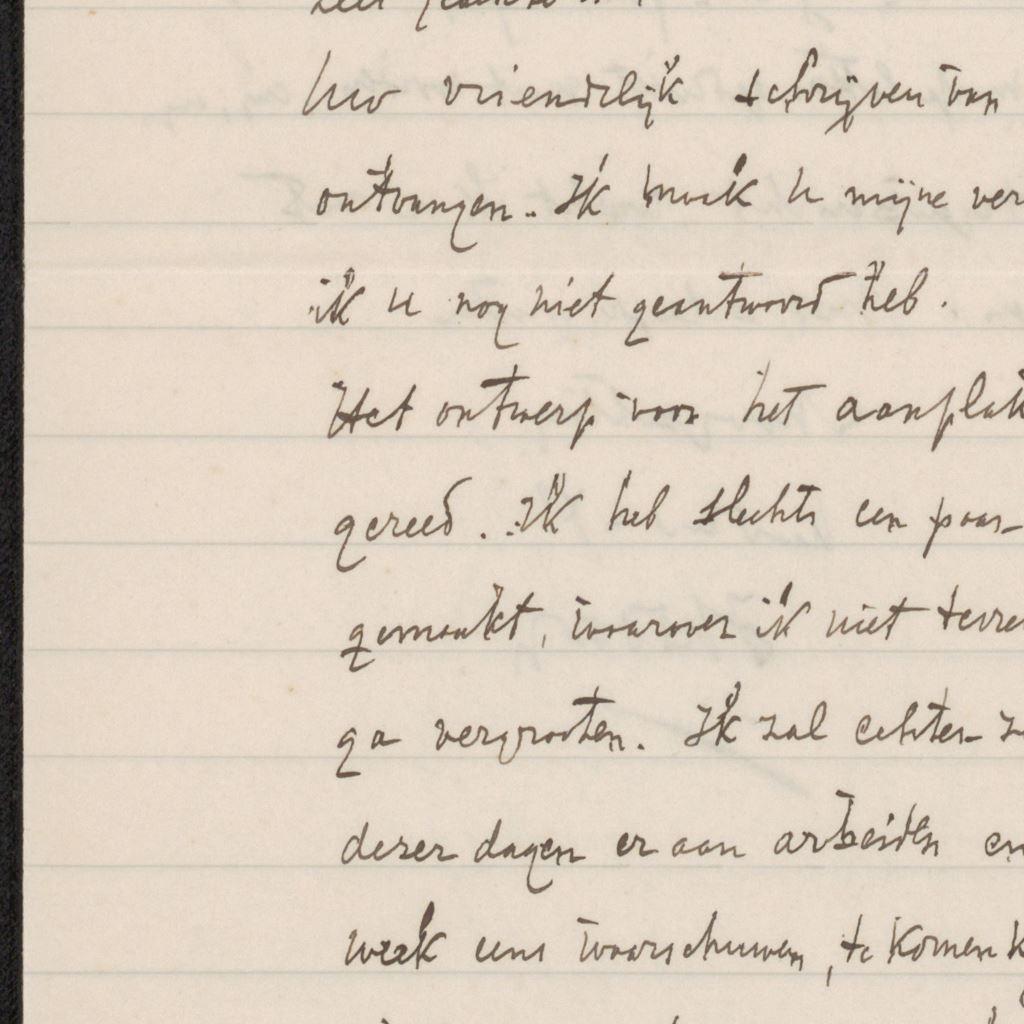 Uw vriendelijk schrijven van
ontvangen. Ik maak U mijne ver
ik U nog niet geantwoord heb.
Het ontwerp voor het aanplak
gereed. Ik heb slechts een paar
gemaakt, waarover ik niet tevre
ga vergrooten. Ik zal echter z
dezer dagen er aan arbeiden en
week eens waarschuwen, te komen k